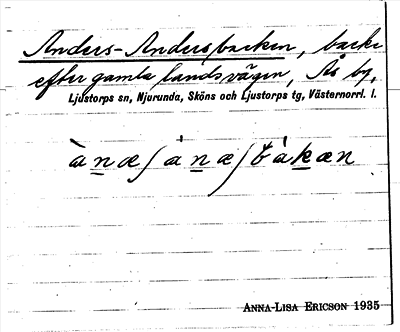 Anders-Andersbacken, backe
efter gamla landsvägen, Ås by,
Ljustorps sn, Njurunda, Sköns och Ljustorps tg, Västernorrl. l.
ànæʃánæʃbàkæn
ANNA-LISA ERICSON 1935